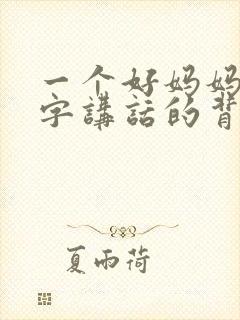 一个好妈妈
字講話的背
夏雨荷